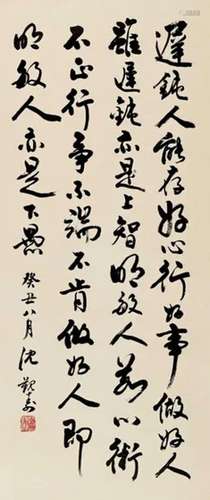 遲鈍人能存好心行好事做好人
雖遲鈍亦是上智明敏人若心術
不正行事不端不肯做好人即
明敏人亦是下愚
癸丑八月沈覲壽